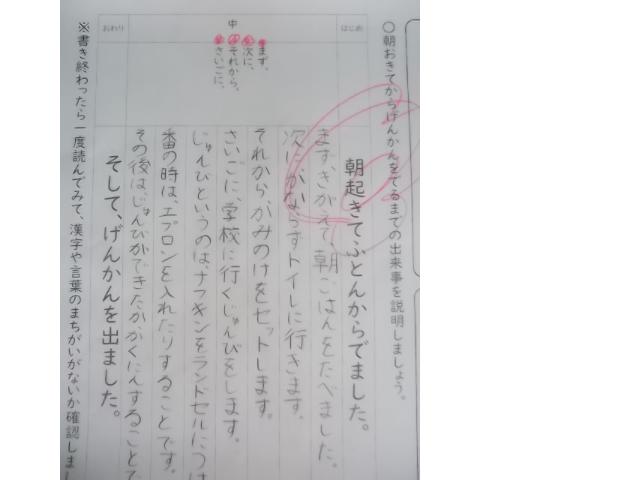 〇朝おきてからげんかんをでるまでの出来事を説明しましょう。
はじめ
朝起きてふとんからでました。
中
まず、
次に、
それから、
さいごに、
まずきがえて、朝ごはんをたべました。
次にかならずトイレに行きます。
それからかみのけをセットします。
さいごに、学校に行くじゅんびをします。
じゅんびというのは、ナフキンをランドセルにつけ
番の時は、エプロンを入れたりすることです。
その後は、じゅんびができたかかくにんすることで
おわり
そして、げんかんを出ました。
※書き終わったら一度読んでみて、漢字や言葉のまちがいがないか確認しま